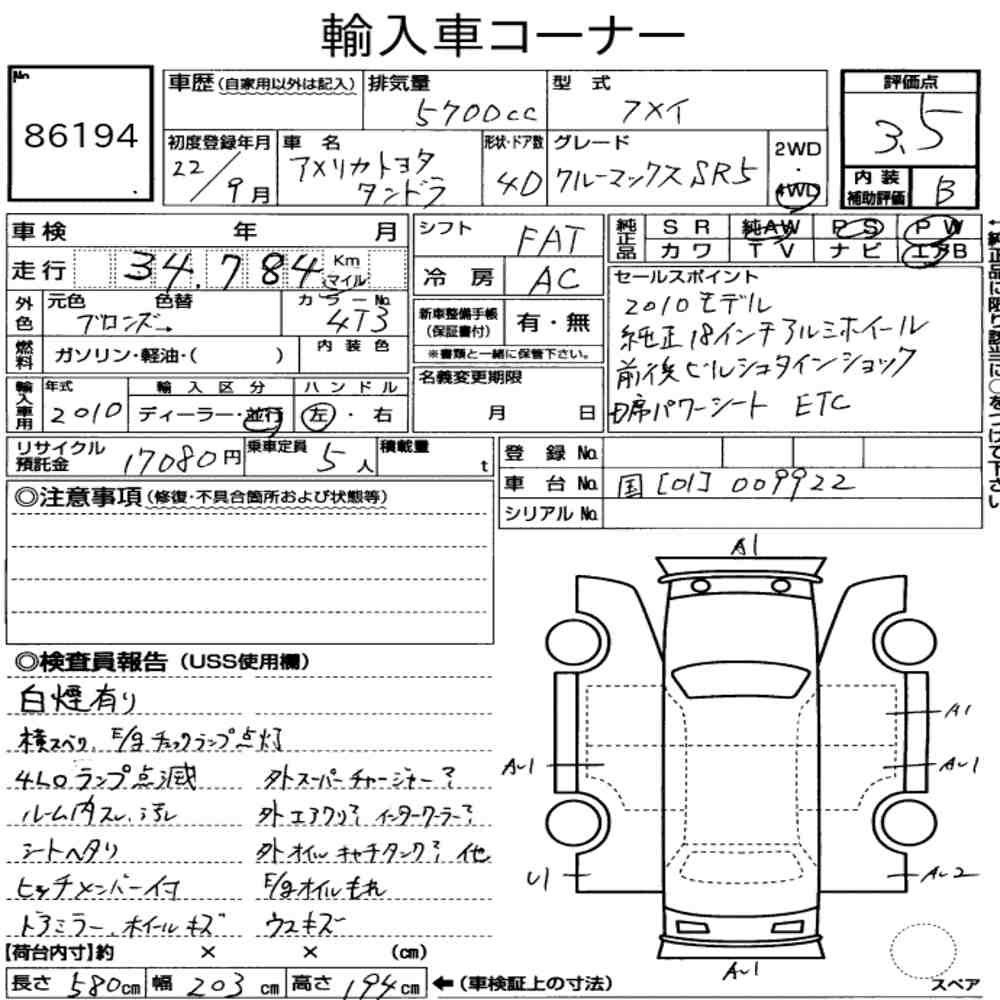 輸入車コーナー
No.
86194
車歴 (自家用以外は記入)
排気量
5700cc
型式
アメイ
評価点
3.5
初度登録年月
22/9月
車名
アメリカトヨタ
タンドラ
形状・ドア数
4D
グレード
クルーマックスSR5
2WD
・
4WD
内装
補助評価
B
車検 年 月
走行 34.784 Km
マイル
シフト
FAT
冷房
AC
純正品
SR 純AW PS PW
カワ TV ナビ エアB
外色
元色 色替
ブロンズ→
カラーNo.
4T3
燃料
ガソリン・軽油・( )
内装色
新車整備手帳
(保証書付)
有・無
※書類と一緒に保管下さい。
セールスポイント
2010モデル
純正18インチアルミホイール
前後ビルシュタインショック
D席パワーシート ETC
輸入車用
年式
2010
輸入区分
ディーラー・並行
ハンドル
左・右
名義変更期限
月 日
リサイクル
預託金
17080円
乗車定員
5人
積載量
t
登録No.
車台No. 国[01]009922
シリアルNo.
←純正品に限り該当に○をつけて下さい
◎注意事項(修復・不具合箇所および状態等)
◎検査員報告(USS使用欄)
白煙有り
横スベリ、E/gチェックランプ点灯
4LOランプ点滅
外スーパーチャージャー?
ルーム内スレ、汚レ
外エアクリ? インタークーラー?
シートヘタリ
外オイルキャチタンク? 他
ヒッチメンバー付
E/gオイルもれ
ドアミラー、ホイールキズ
ウスキズ
A1
A1
A1
A1
U1
A2
A1
スペア
【荷台内寸】約 × × (cm)
長さ 580cm 幅 203cm 高さ 194cm ←(車検証上の寸法)